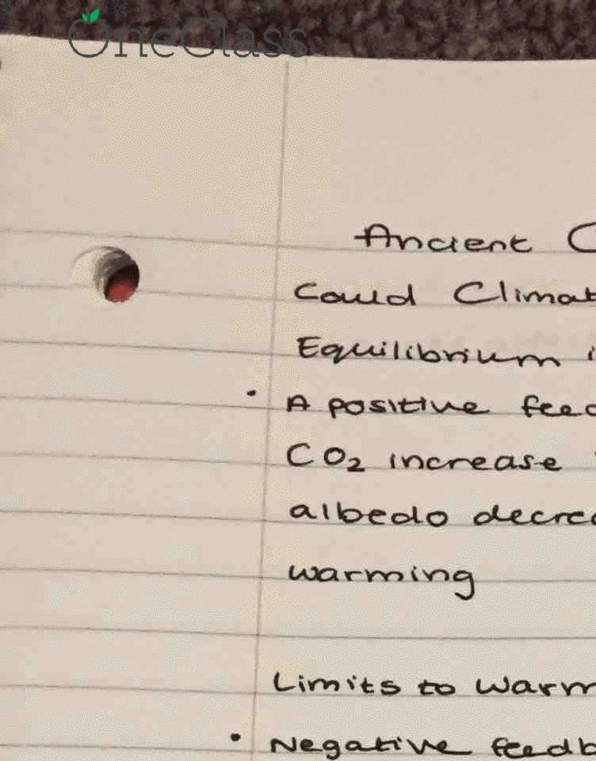 OneClass
Ancient C
Could Climat
Equilibrium i
• A positive feed
CO₂ increase
albedo decrea
warming
Limits to warm
• Negative feedb